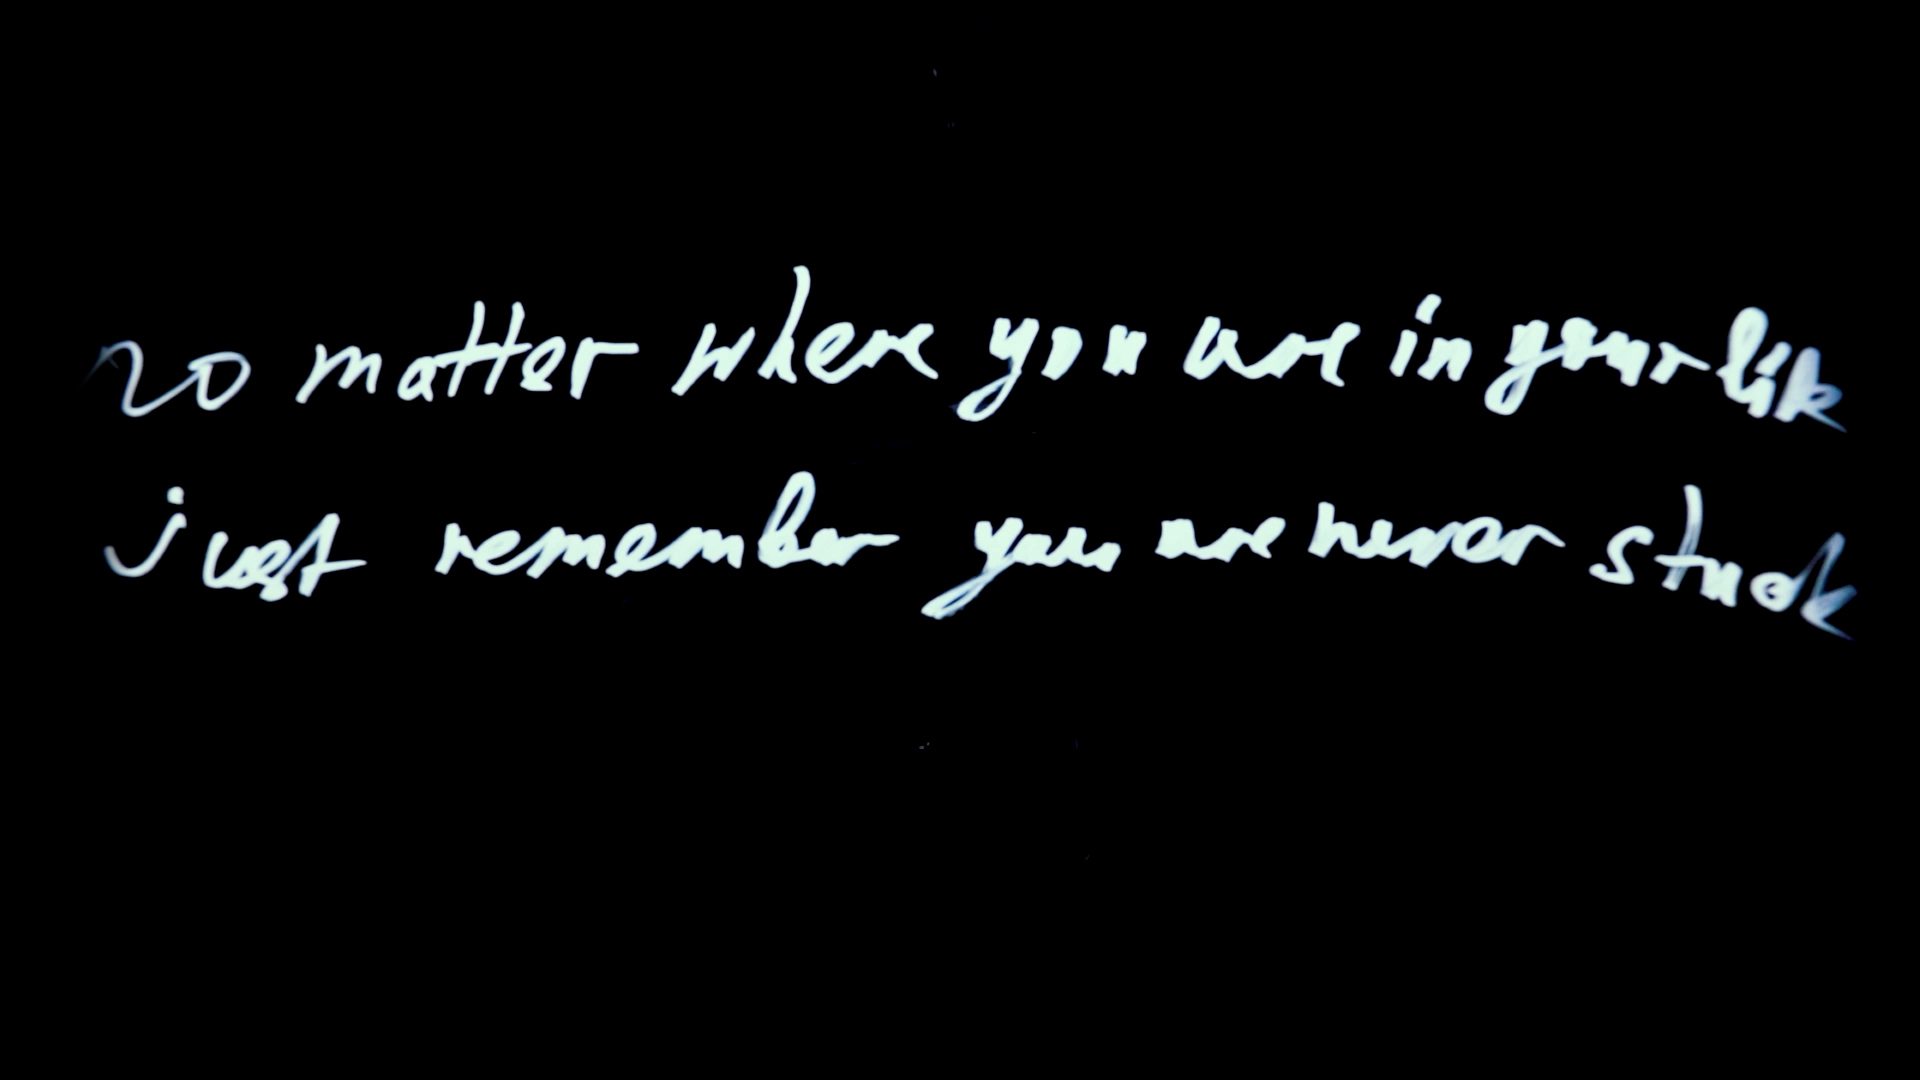 no matter where you are in your life
just remember you are never stuck